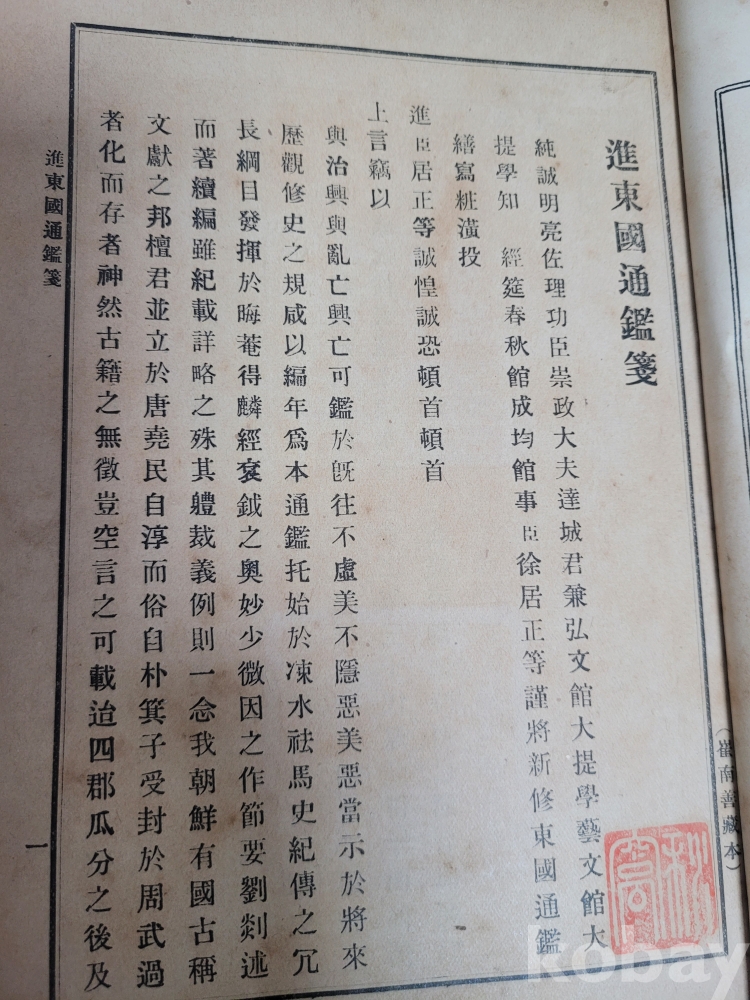 （崔南善藏本）
進東國通鑑箋
純誠明亮佐理功臣崇政大夫達城君兼弘文館大提學藝文館大
提學知　經筵春秋館成均館事臣徐居正等謹將新修東國通鑑
繕寫粧潢投
進臣居正等誠惶誠恐頓首頓首
上言竊以
與治興與亂亡興亡可鑑於旣往不虛美不隱惡美惡當示於將來
歷觀修史之規咸以編年爲本通鑑托始於涑水祛馬史紀傳之冗
長綱目發揮於晦菴得麟經袞鉞之奧妙少微因之作節要劉剡述
而著續編雖紀載詳略之殊其軆裁義例則一念我朝鮮有國古稱
文獻之邦檀君並立於唐堯民自淳而俗自朴箕子受封於周武過
者化而存者神然古籍之無徵豈空言之可載迨四郡瓜分之後及
進東國通鑑箋
一
kobay